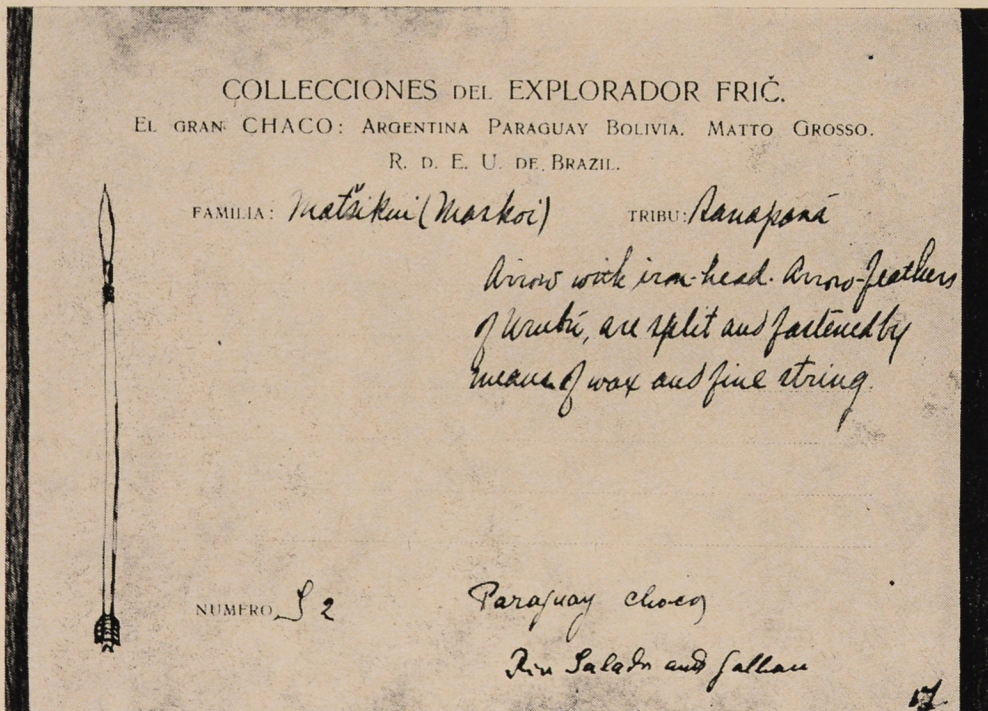 COLLECCIONES DEL EXPLORADOR FRIČ.
EL GRAN CHACO: ARGENTINA PARAGUAY BOLIVIA. MATTO GROSSO.
R. D. E. U. DE BRAZIL.
FAMILIA: Matšikui (Maskoi) TRIBU: Sanapaná
Arrow with iron-head. Arrow-feathers
of Urubú, are split and fastened by
means of wax and fine string.
NUMERO S 2 Paraguay choco
Rio Salado and Galban